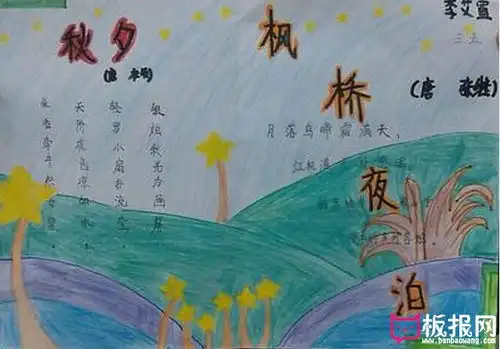 李艾萱
三五
秋夕
(唐 杜牧)
银烛秋光冷画屏，
轻罗小扇扑流萤。
天阶夜色凉如水，
坐看牵牛织女星。
枫桥夜泊
(唐 张继)
月落乌啼霜满天，
江枫渔
板报网
www.banbaowang.com